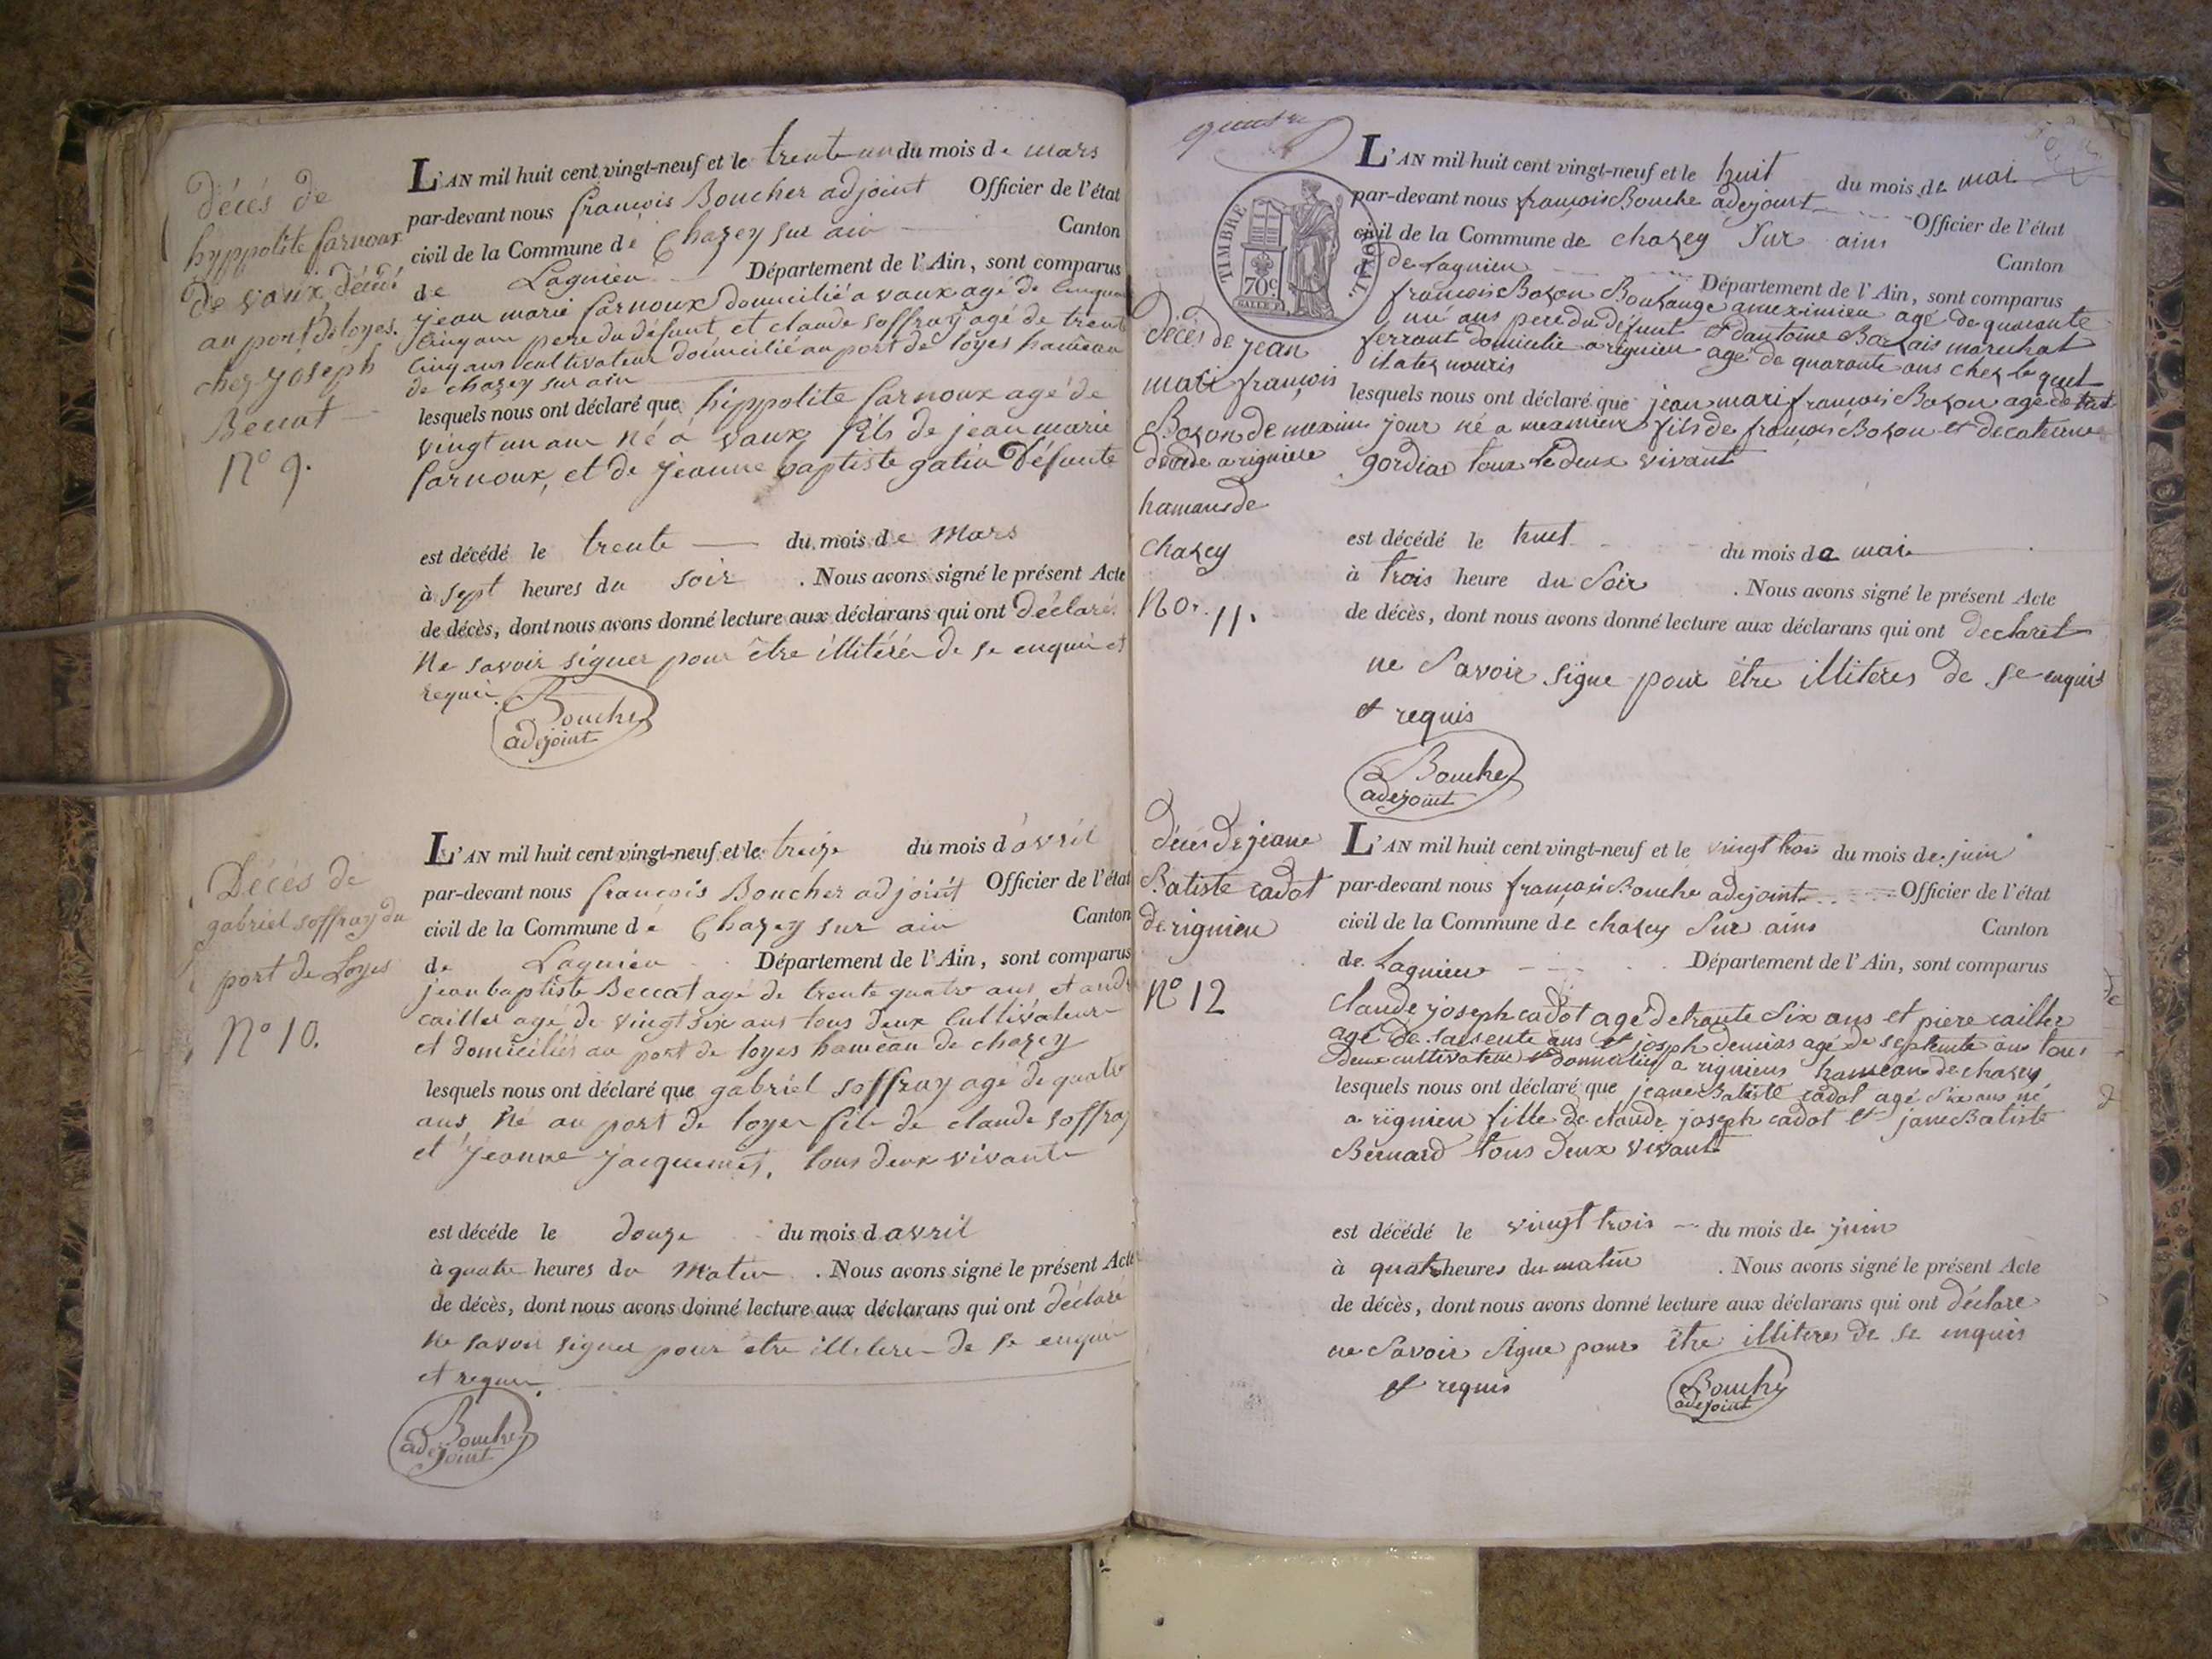 Décés de
hyppolite farnoux
De vaux, décédé
au port de loyes.
chez joseph
Beccat
N° 9.
L'AN mil huit cent vingt-neuf et le trente un du mois de mars
par-devant nous françois Boucher adjoint Officier de l'état
civil de la Commune dé Chazey sur ain Canton
de Lagnieu Département de l'Ain, sont comparus
jean marie farnoux domicilié a vaux agé de cinqua
cinq ans pere du défunt et claude soffray agé de trent
cinq ans cultivateur domicilié au port de loyes hameau
de chazey sur ain
lesquels nous ont déclaré que hippolite farnoux agé de
vingt un an né à vaux fils de jean marie
farnoux, et de jeanne baptiste gatin Défunte
est décédé le trente du mois de Mars
à sept heures du soir . Nous avons signé le présent Acte
de décès, dont nous avons donné lecture aux déclarans qui ont déclarés
Ne savoir signer pour être illitérés de se enquis et
requis.
Bouche
adejoint
Décés de
gabriel soffray du
port de Loyes
N° 10.
L'AN mil huit cent vingt-neuf et le treize du mois d'avril
par-devant nous françois Boucher adjoint Officier de l'état
civil de la Commune dé Chazey sur ain Canton
de Lagnieu Département de l'Ain, sont comparus
jean baptiste Beccat agé de trente quatre ans et andr
cailler agé de vingt six ans tous deux Cultivateurs
et domiciliés au port de loyes hameau de chazey
lesquels nous ont déclaré que gabriel soffray agé de quatre
ans né au port de loyes fils de claude soffray
et jeanne jacquemet, tous deux vivants
est décéde le douze du mois d avril
à quatre heures du Matin . Nous avons signé le présent Acte
de décès, dont nous avons donné lecture aux déclarans qui ont déclaré
ne savoir signer pour être illiterés de se enquis
et requis.
Bouche
adejoint
TIMBRE ROYAL.
70c
L'AN mil huit cent vingt-neuf et le huit du mois de mai
par-devant nous françois Bouche adejoint Officier de l'état
civil de la Commune de chazey Sur ains Canton
d de Lagnieu Département de l'Ain, sont comparus
françois Bozon Boulangé a meximieu agé de quarante
ans pere du défunt et dantoine marechal
ferrant domicilie a rignieu agé de quarante ans chez Lequel
nouris
lesquels nous ont déclaré que jean mari francois Bozon agé de huit
jour né a meximieu fils de françois Bozon et de caterine
gordias tous le deux vivant
Décés de jean
mari françois
Bozon de meximi
décédé a rignieu
hamaus de
chazey
No. 11.
est décédé le huit du mois de mai
à trois heure du Soir . Nous avons signé le présent Acte
de décès, dont nous avons donné lecture aux déclarans qui ont declaret
ne Savoir signe pour être illiteres de se enquis
et requis
Bouche
adejoint
décés de jeane
Batiste cadot
de rignieu
N° 12
L'AN mil huit cent vingt-neuf et le vingt trois du mois de juin
par-devant nous françois Bouche adejoint Officier de l'état
civil de la Commune de chazey Sur ains Canton
de Lagnieu Département de l'Ain, sont comparus
Claude joseph cadot agé de trante Six ans et piere cailler
agé de ans et joseph agé de septente ans tous
deux cultivateur et domicilies a rignieus hameau de chazey
lesquels nous ont déclaré que jeane Batiste cadot agé Six ans né
a rignieu fille de claude joseph cadot et jane Batiste
Bernard tous deux vivant
est décédé le vingt trois du mois de juin
à quatre heures du matin . Nous avons signé le présent Acte
de décès, dont nous avons donné lecture aux déclarans qui ont déclare
ne Savoir Signe pour être illiteres de se enquis
et requis
Bouche
adejoint